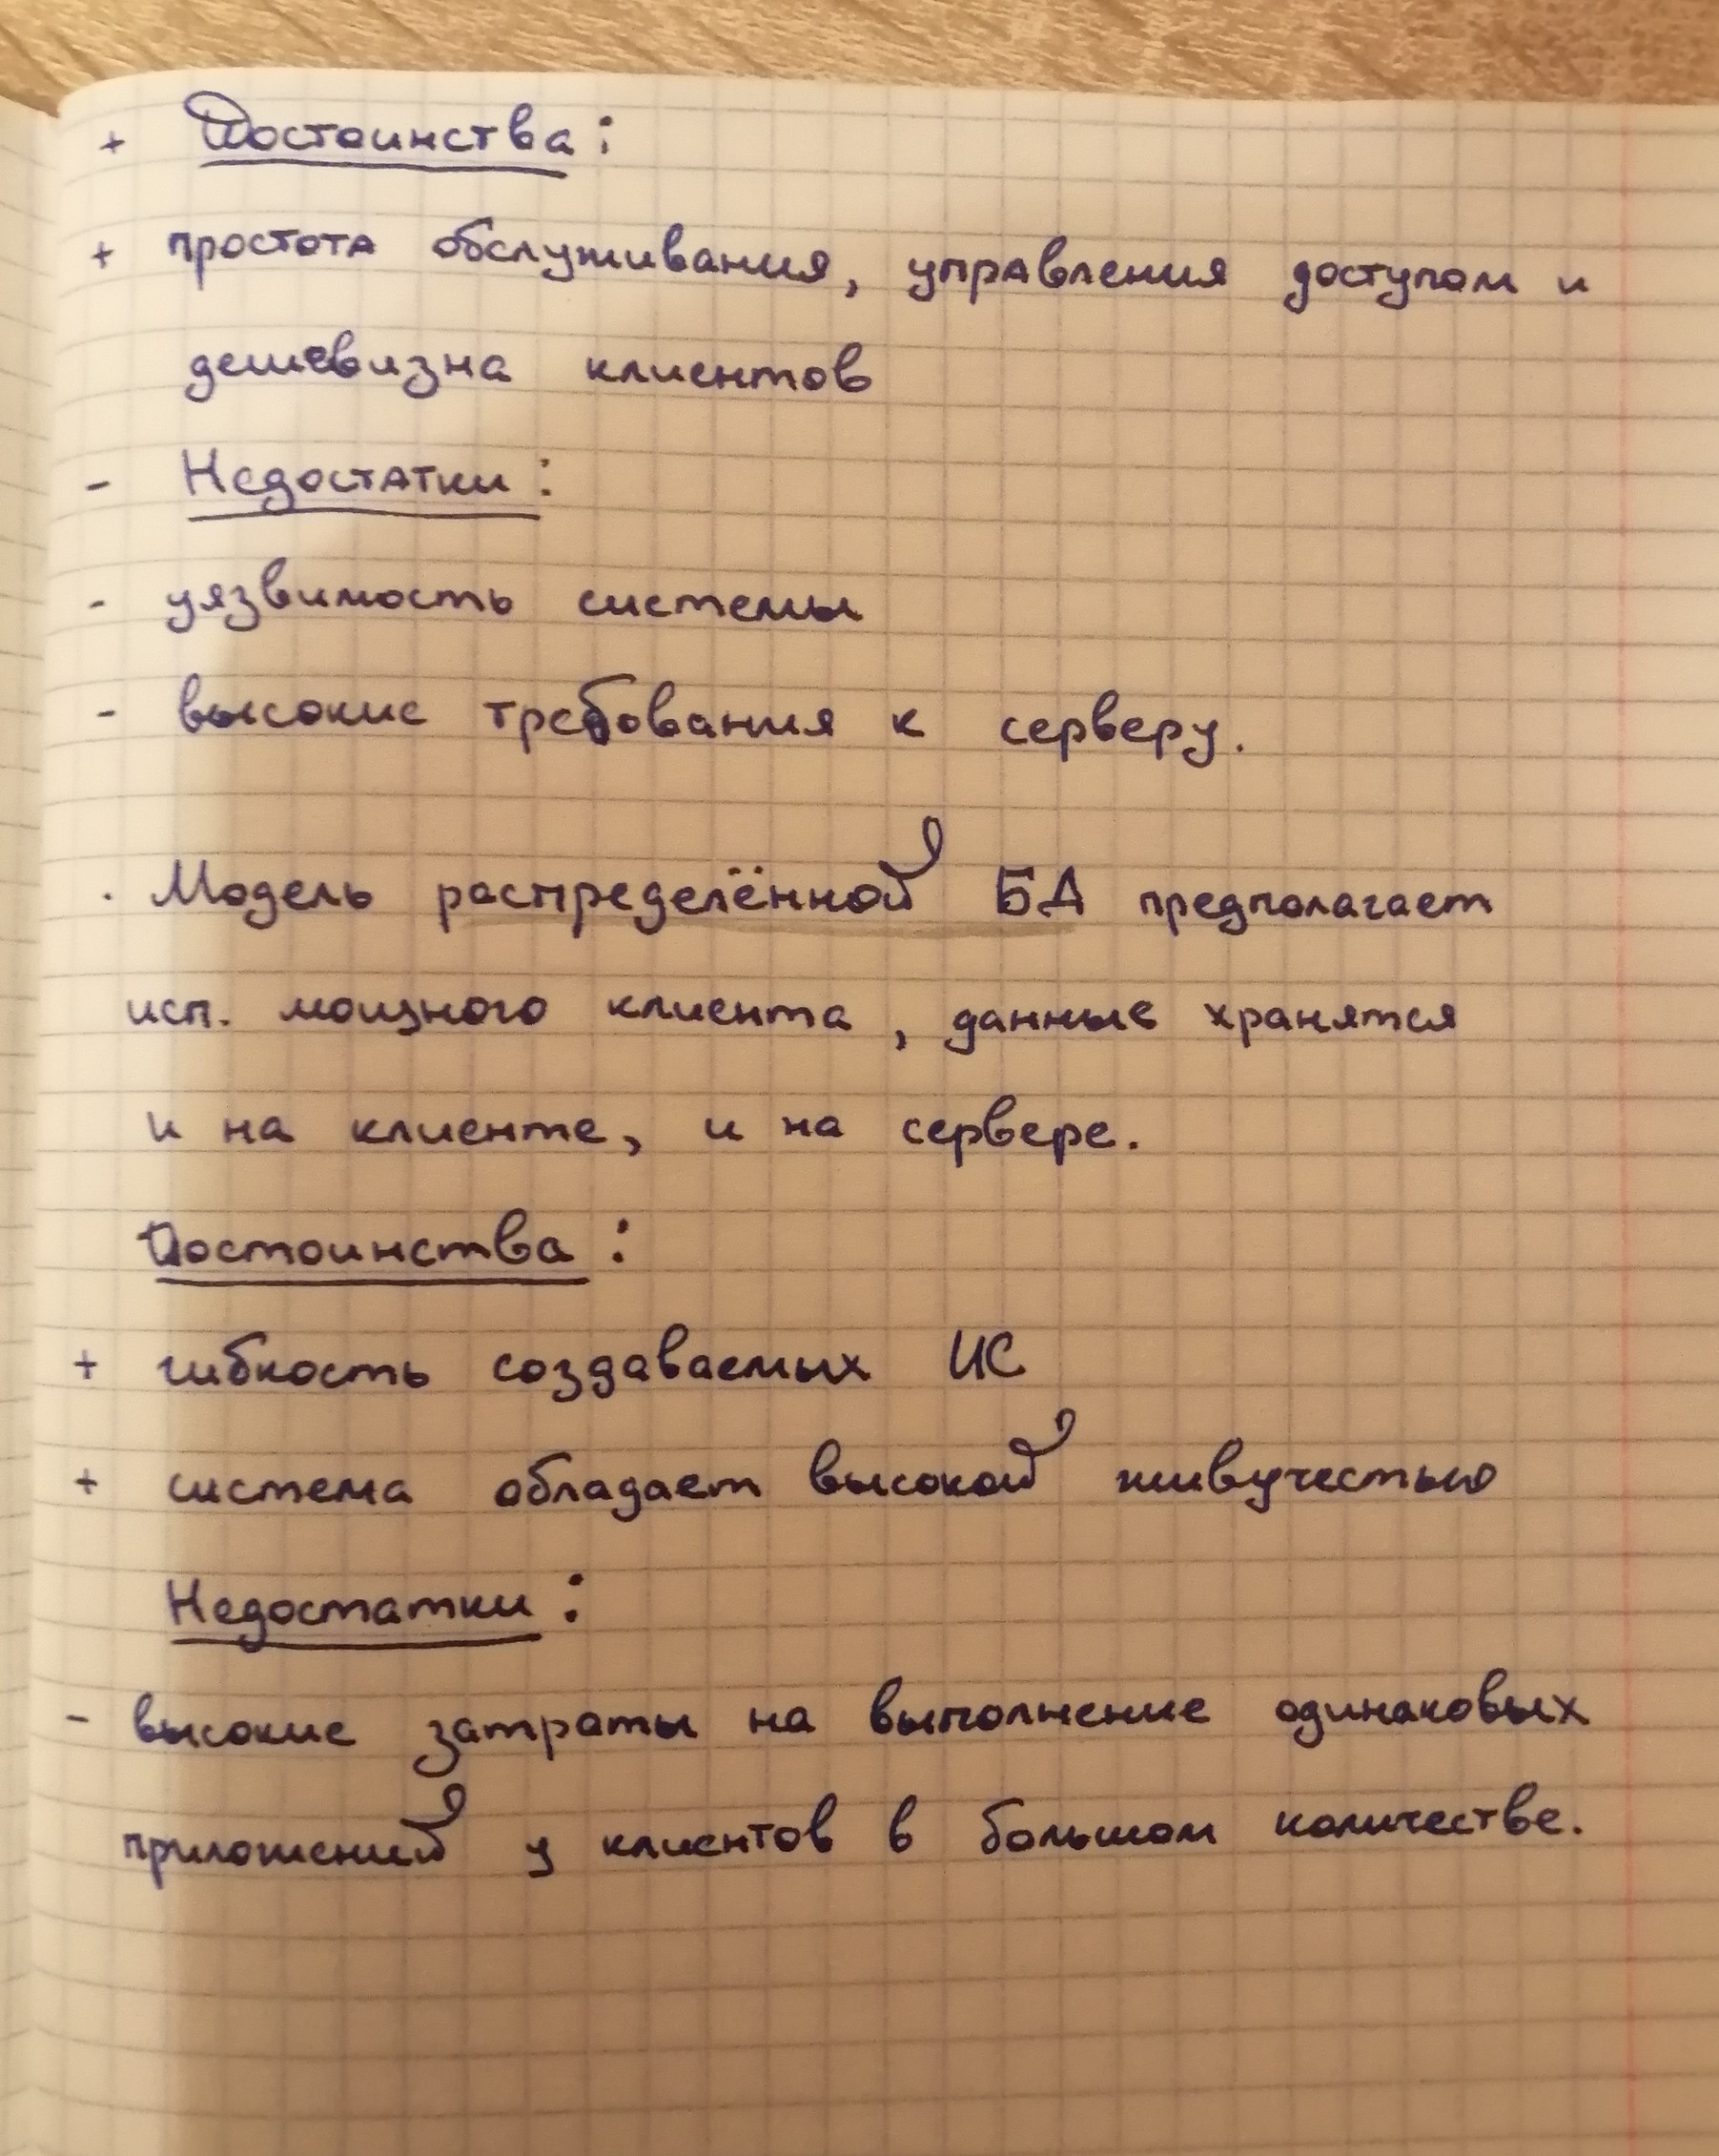 + Достоинства:
+ простота обслуживания, управления доступом и
дешевизна клиентов
- Недостатки:
- уязвимость системы
- высокие требования к серверу.
· Модель распределённой БД предполагает
исп. мощного клиента, данные хранятся
и на клиенте, и на сервере.
Достоинства:
+ гибкость создаваемых ИС
+ система обладает высокой живучестью
Недостатки:
- высокие затраты на выполнение одинаковых
приложений у клиентов в большом количестве.